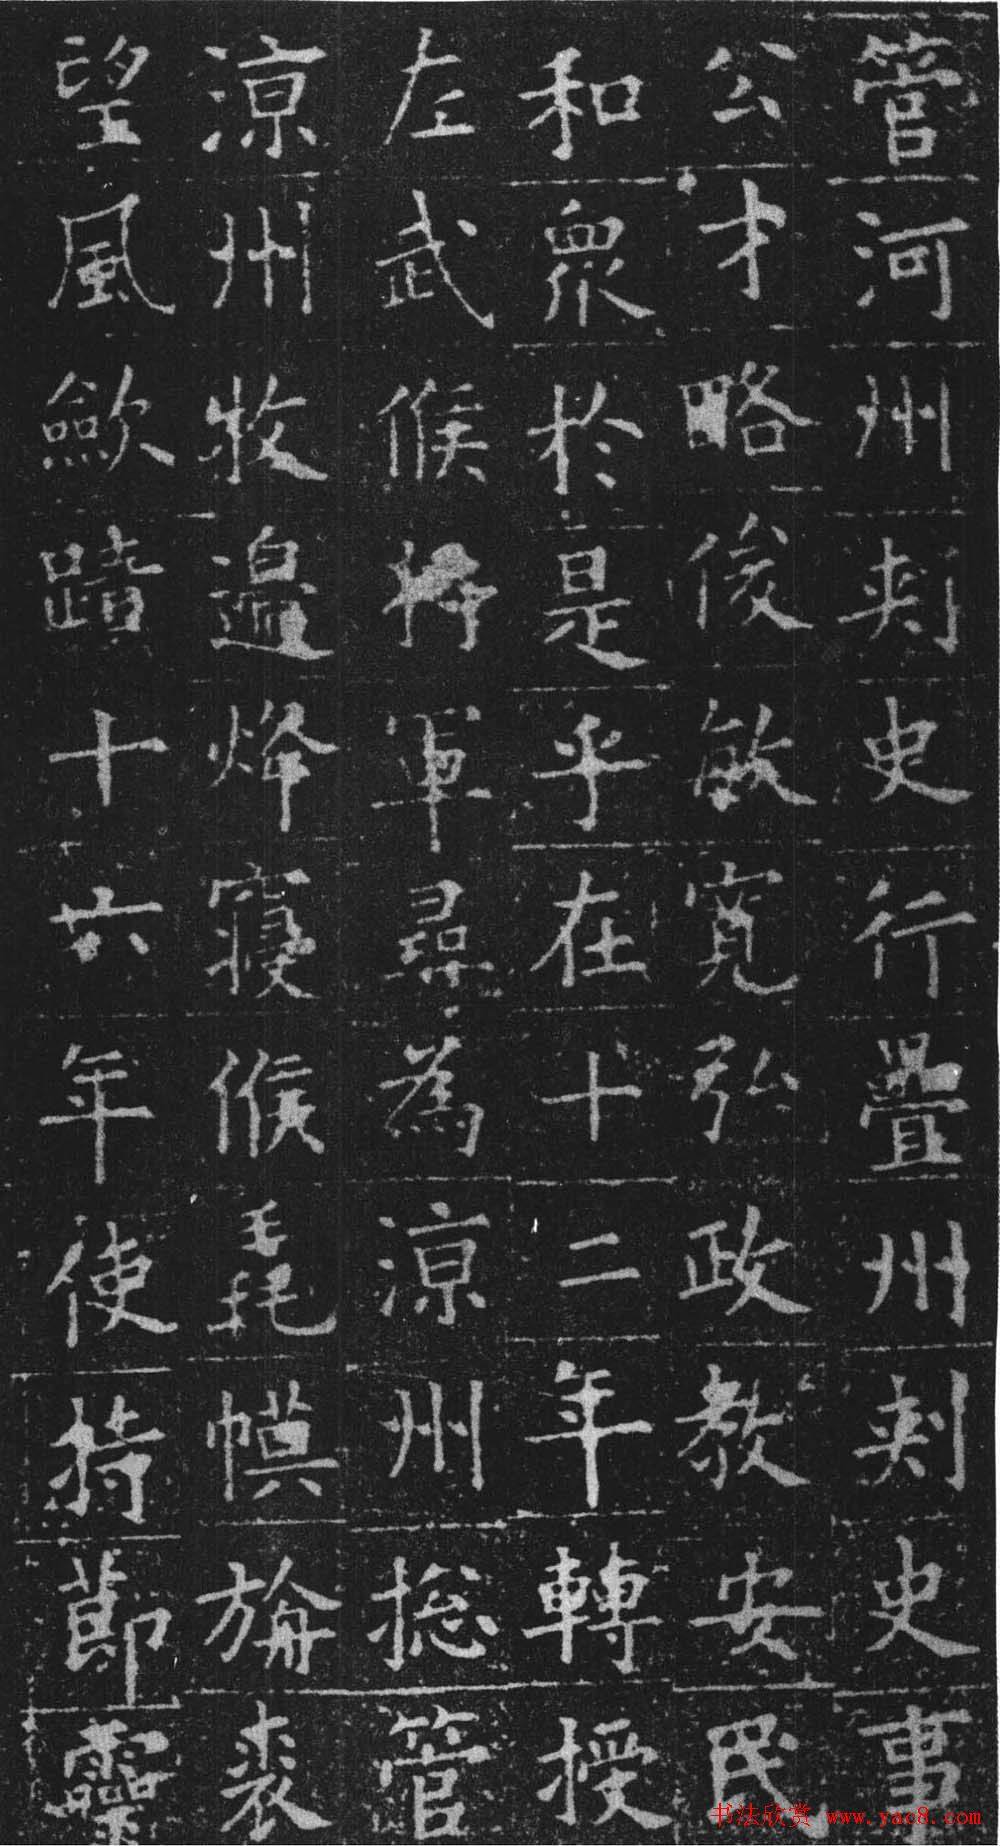 管河州刾史行疊州刾史事
公才略俊敏寬弘政教安民
和衆於是乎在十二年轉授
左武候將軍尋為涼州揔管
涼州牧邉烽寑候毳幙旃裘
望風歛蹟十六年使持節靈
书法欣赏 www.yac8.com